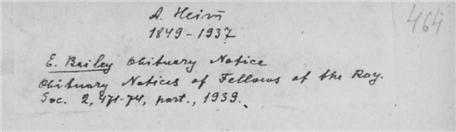 A. Heim
464
1849-1937
E. Bailey Obituary Notice
Obituary Notices of Fellows of the Roy.
Soc. 2, 471-74, port., 1939.